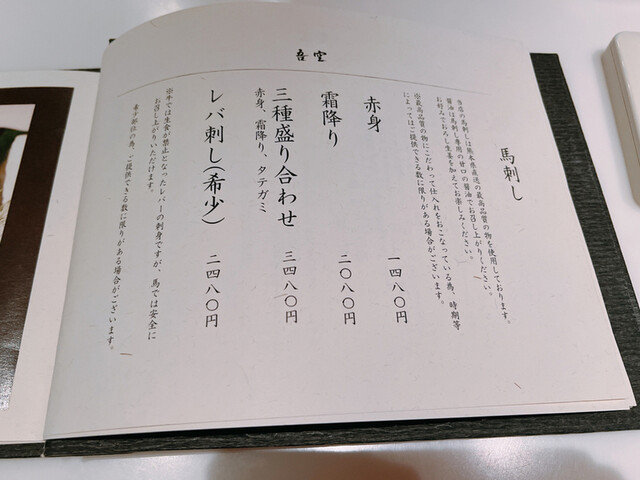 吾空
馬刺し
当店の馬刺しは熊本県直送の最高品質の物を使用しております。
醤油は馬刺し専用の甘口の醤油でお召し上がりください。
お好みでおろし生姜を加えてお楽しみください。
※最高品質の物にこだわって仕入れをおこなっている為、時期等
によってはご提供できる数に限りがある場合がございます。
赤身 一四八〇円
霜降り 二〇八〇円
三種盛り合わせ 三四八〇円
赤身、霜降り、タテガミ
レバ刺し(希少) 二四八〇円
※牛では生食が禁止となったレバーの刺身ですが、馬では安全に
お召し上がりいただけます。
希少部位の為、ご提供できる数に限りがある場合がございます。